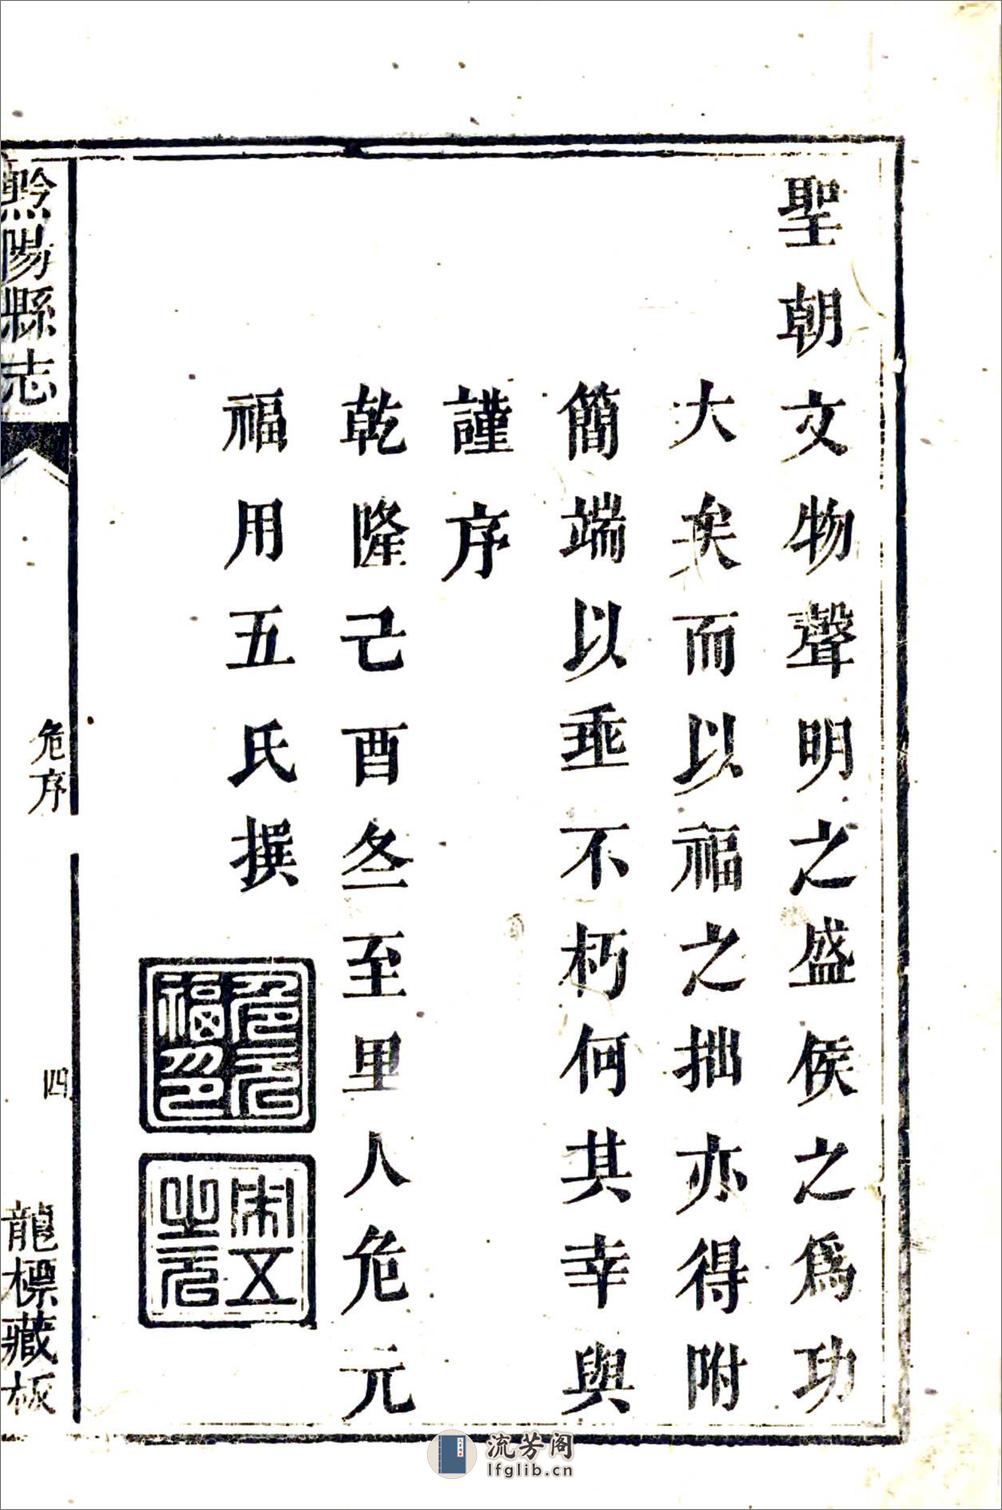 聖朝文物聲明之盛侯之爲功
大矣而以福之拙亦得附
簡端以埀不朽何其幸與
謹序
乾隆己酉冬至里人危元
福用五氏撰
危元
福印
黔陽縣志
危序
四
龍標藏板
流芳阁
lfglib.cn